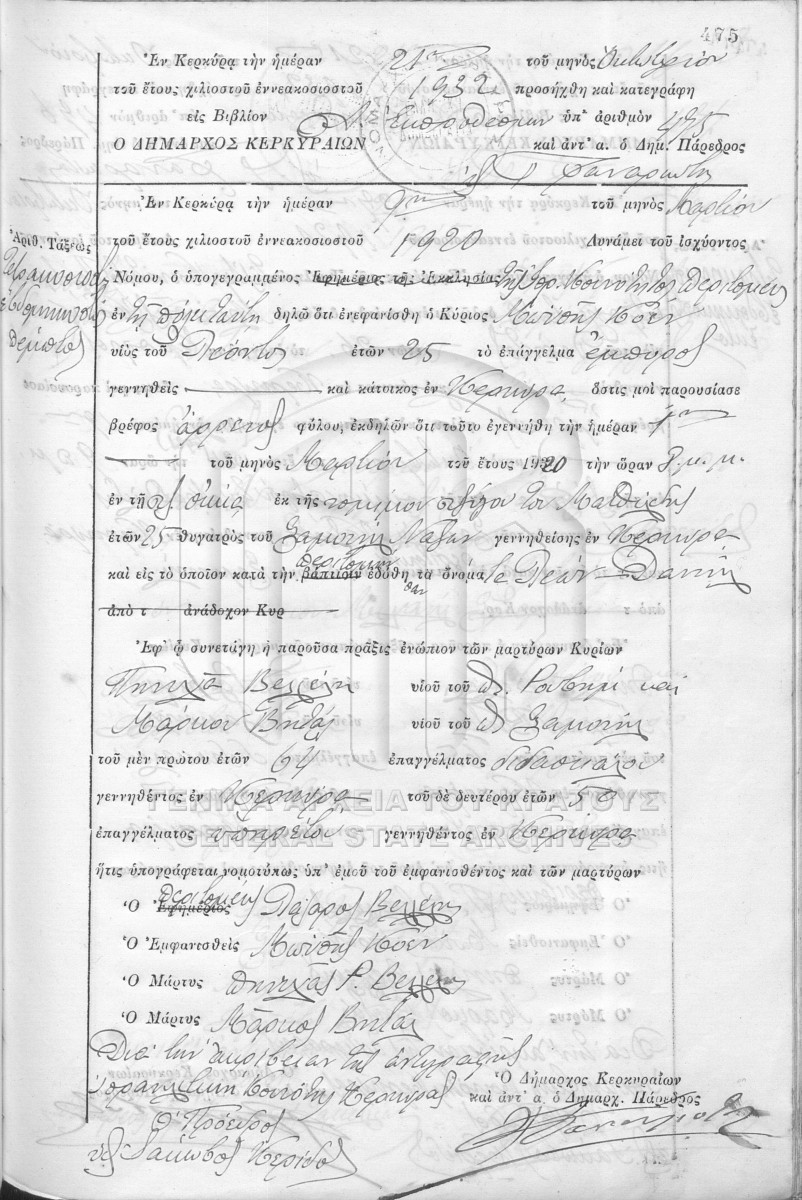 475
Ἐν Κερκύρᾳ τὴν ἡμέραν 21ην τοῦ μηνὸς Ὀκτωβρίου
τοῦ ἔτους χιλιοστοῦ ἐννεακοσιοστοῦ 1932 προσήχθη καὶ κατεγράφη
εἰς Βιβλίον Α. Ἐκπροθέσμων ὑπ' ἀριθμὸν 475
Ο ΔΗΜΑΡΧΟΣ ΚΕΡΚΥΡΑΙΩΝ καὶ ἀντ' α. ὁ Δημ. Πάρεδρος
Ἐν Κερκύρᾳ τὴν ἡμέραν 9ην τοῦ μηνὸς Μαρτίου
Ἀριθ. Τάξεως
τοῦ ἔτους χιλιοστοῦ ἐννεακοσιοστοῦ 1920 Δυνάμει τοῦ ἰσχύοντος
Νόμου, ὁ ὑπογεγραμμένος Ἐφημέριος τῆς Ἐκκλησίας τῆς Ἰσρ. Κοινότητος Περιτομεὺς
ἐν τῇ πόλει ταύτῃ δηλῶ ὅτι ἐνεφανίσθη ὁ Κύριος Μωϋσῆς Κοὲν
υἱὸς τοῦ Λεόντος ἐτῶν 25 τὸ ἐπάγγελμα ἔμπορος
γεννηθεὶς καὶ κάτοικος ἐν Κερκύρᾳ, ὅστις μοὶ παρουσίασε
βρέφος ἄρρενος φύλου, ἐκδηλῶν ὅτι τοῦτο ἐγεννήθη τὴν ἡμέραν
τοῦ μηνὸς Μαρτίου τοῦ ἔτους 1920 τὴν ὥραν 8 μ. μ.
ἐν τῇ οἰκίᾳ ἐκ τῆς νομίμου συζύγου του Ματθίλδης
ἐτῶν 25 θυγατρὸς τοῦ Σαμουὴλ Νάξων γεννηθείσης ἐν Κερκύρᾳ
καὶ εἰς τὸ ὁποῖον κατὰ τὴν βάπτισιν περιτομὴν ἐδόθη τὰ ὄνομα Λεὼν Δανιὴλ
ἀπὸ τ ἀνάδοχον Κυρ
Ἐφ' ᾧ συνετάγη ἡ παροῦσα πρᾶξις ἐνώπιον τῶν μαρτύρων Κυρίων
Πινχᾶς Βελλέλη υἱοῦ τοῦ καὶ
Μάρκου Βιτάλ υἱοῦ τοῦ Σαμουὴλ
τοῦ μὲν πρώτου ἐτῶν 64 ἐπαγγέλματος διδασκάλου
γεννηθέντος ἐν Κερκύρᾳ τοῦ δὲ δευτέρου ἐτῶν 50
ΓΕΝΙΚΑ ΑΡΧΕΙΑ ΤΟΥ ΚΡΑΤΟΥΣ
ἐπαγγέλματος γεννηθέντος ἐν Κερκύρᾳ
GENERAL STATE ARCHIVES
ἥτις ὑπογράφεται νομοτύπως ὑπ' ἐμοῦ τοῦ ἐμφανισθέντος καὶ τῶν μαρτύρων
Ὁ Ἐφημέριος Περιτομεὺς Λάζαρος Βελλέλης
Ὁ Ἐμφανισθεὶς Μωϋσῆς Κοὲν
Ὁ Μάρτυς Πινχᾶς Ρ. Βελλέλης
Ὁ Μάρτυς Μάρκος Βιτάλ
Διὰ τὴν ἀκρίβειαν τῆς ἀντιγραφῆς
Ἰσραηλιτικὴ Κοινότης Κερκύρας
Ὁ Πρόεδρος
Ἰάκωβος
Ὁ Δήμαρχος Κερκυραίων
καὶ ἀντ' α. ὁ Δημαρχ. Πάρεδρος